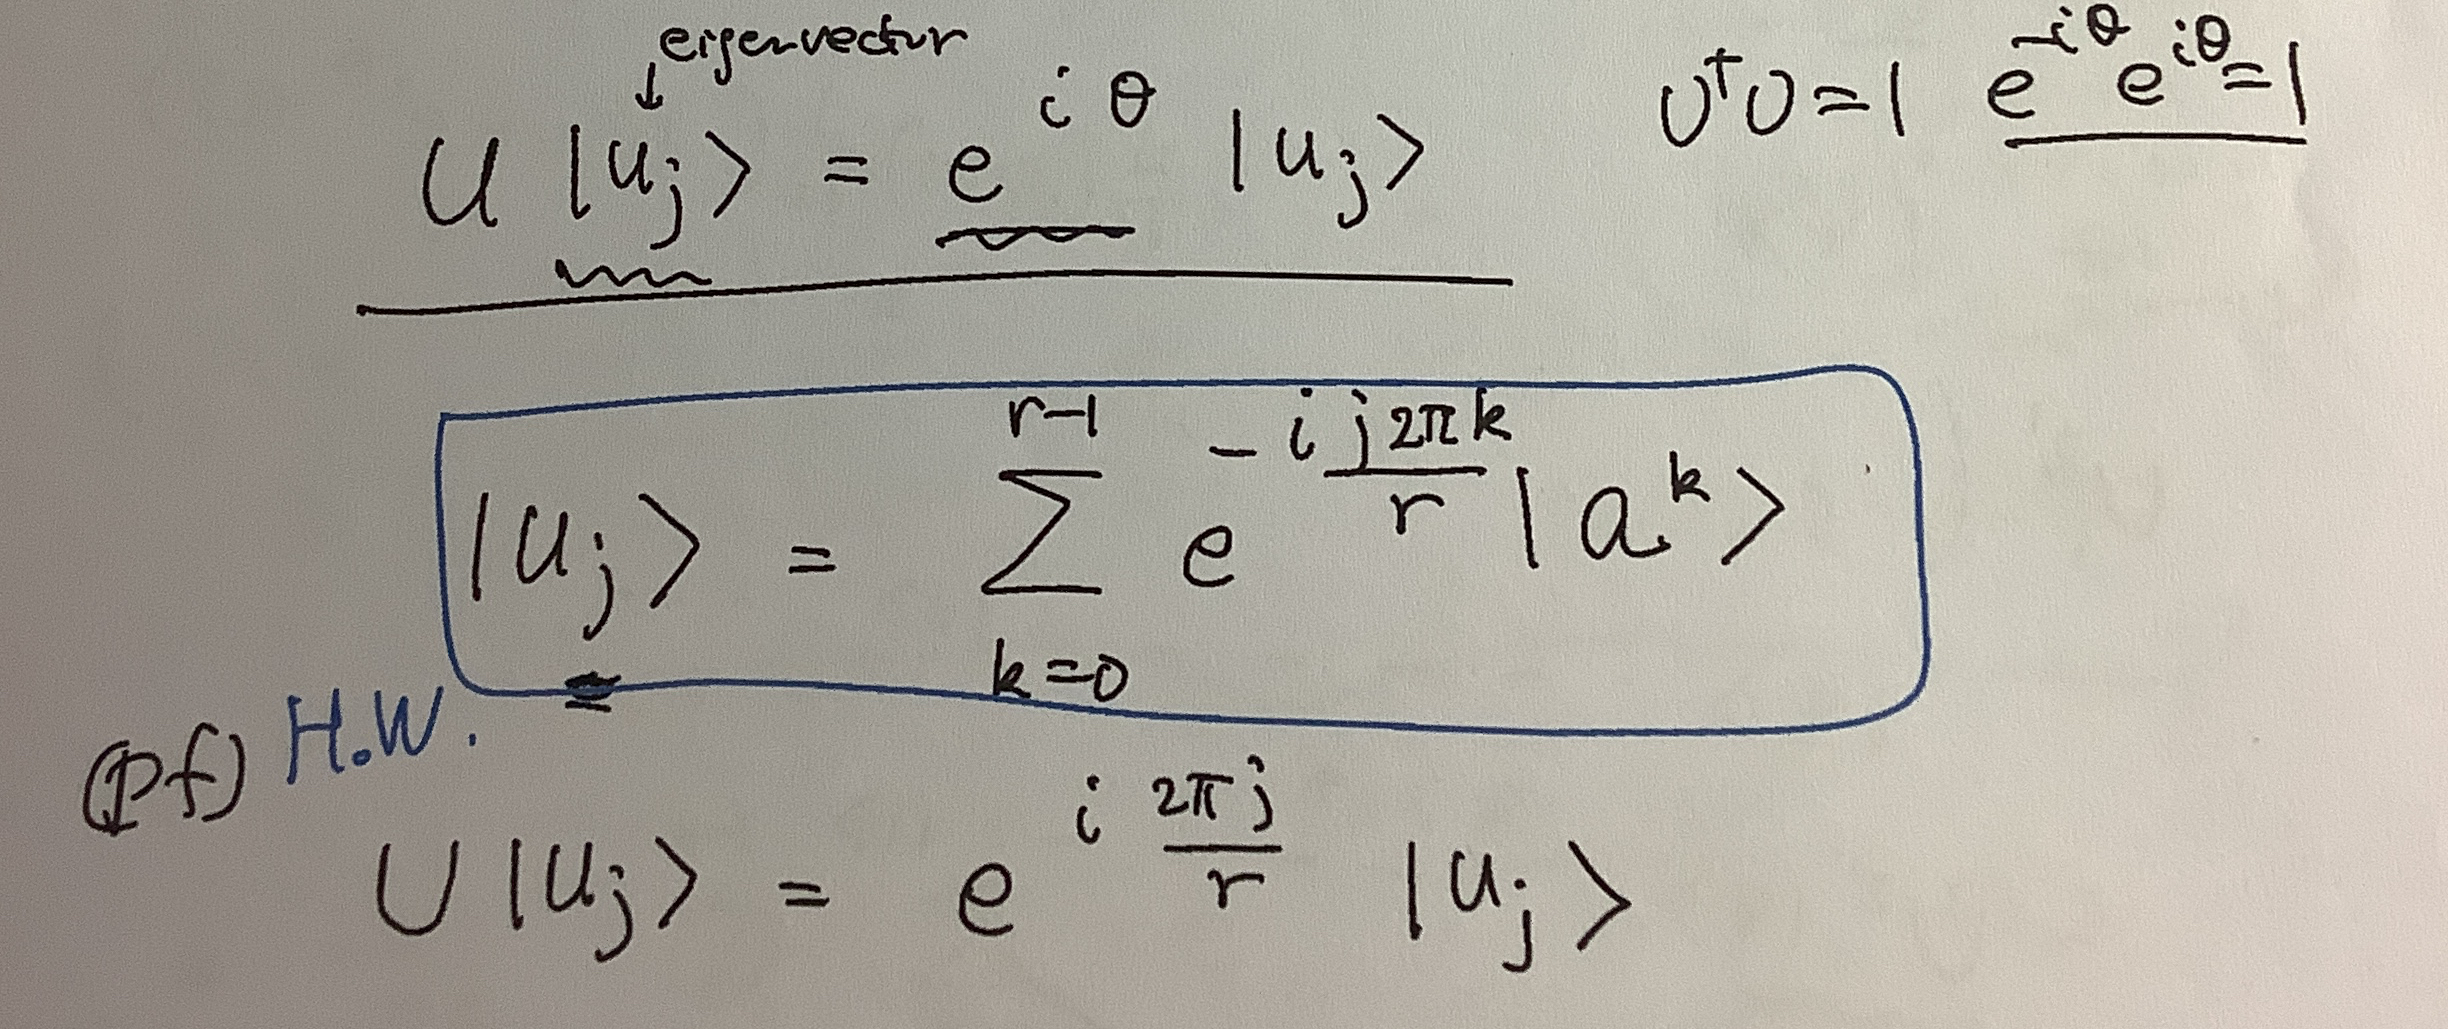 ↓ eigenvector
U |u_j⟩ = e^{iθ} |u_j⟩ U†U = 1 e^{-iθ} e^{iθ} = 1
|u_j⟩ = \sum_{k=0}^{r-1} e^{-i \frac{j2πk}{r}} |a^k⟩
(pf) H.W.
U |u_j⟩ = e^{i \frac{2πj}{r}} |u_j⟩